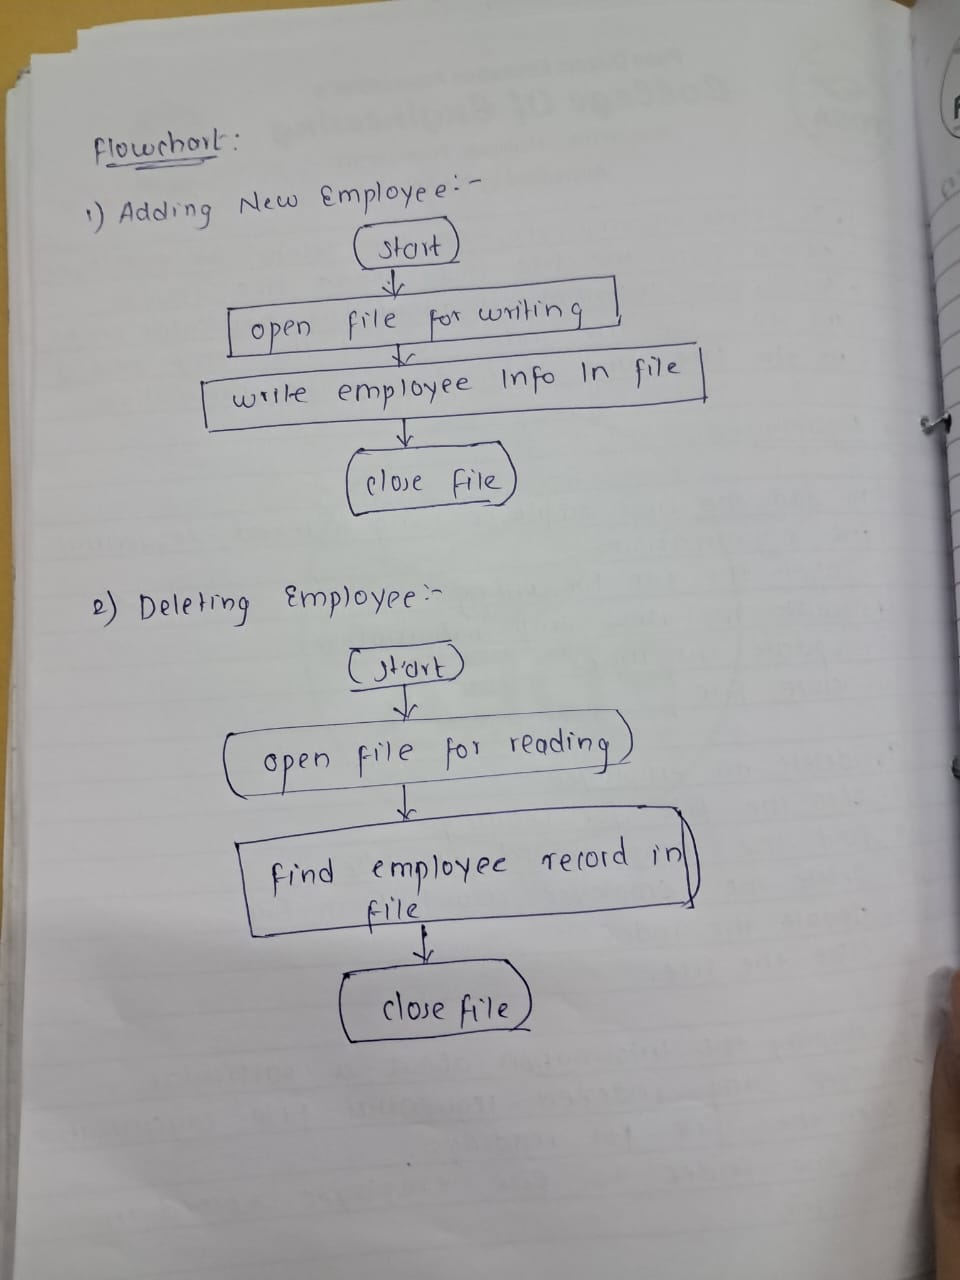 Flowchart:
1) Adding New Employee:-
Start
open file for writing
write employee Info In file
close file
2) Deleting Employee:-
Start
open file for reading
find employee record in
file
close file